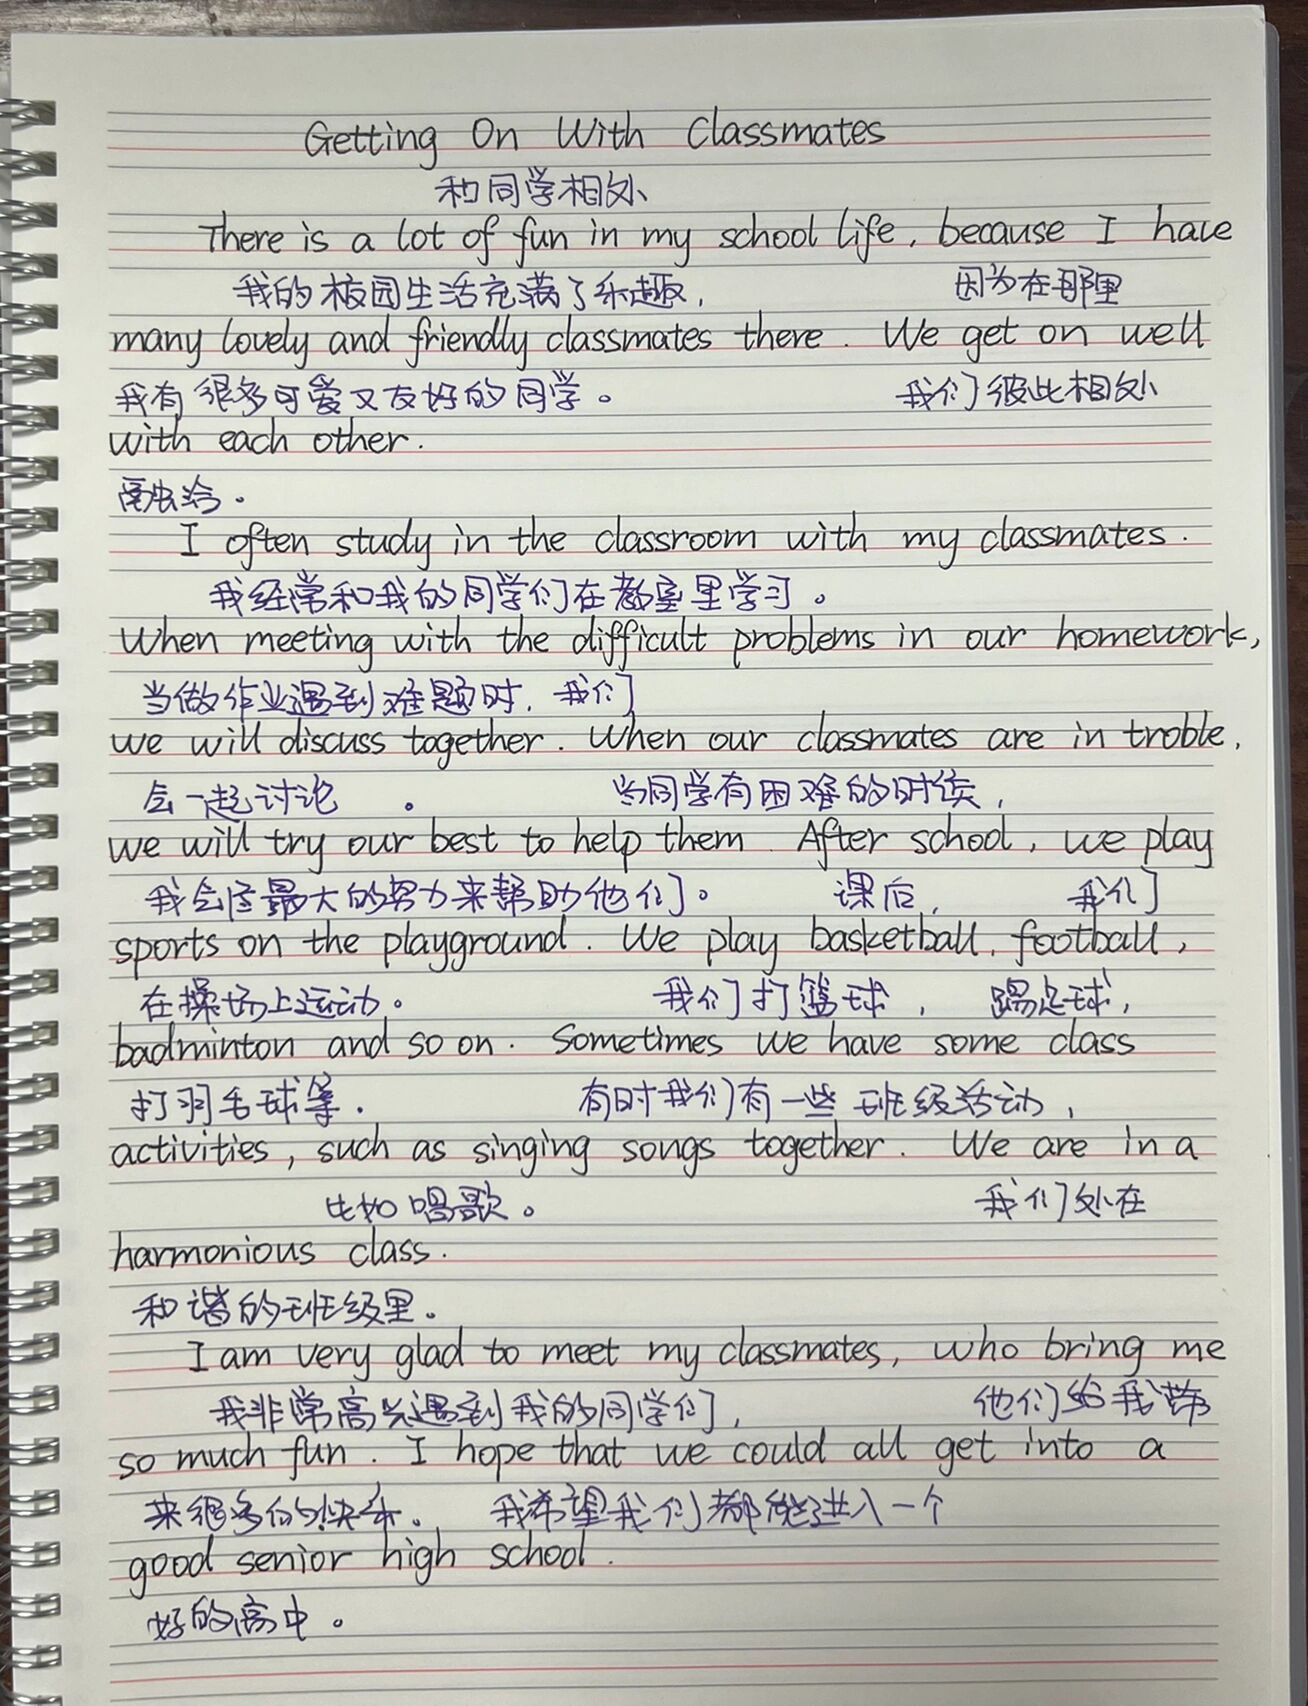 Getting On With Classmates
和同学相处
There is a lot of fun in my school life, because I have
我的校园生活充满了乐趣, 因为在那里
many lovely and friendly classmates there. We get on well
我有很多可爱又友好的同学。 我们彼此相处
with each other.
融洽。
I often study in the classroom with my classmates.
我经常和我的同学们在教室里学习。
When meeting with the difficult problems in our homework,
当做作业遇到难题时, 我们
we will discuss together. When our classmates are in troble,
会一起讨论。 当同学有困难的时候,
we will try our best to help them. After school, we play
我会尽最大的努力来帮助他们。 课后, 我们
sports on the playground. We play basketball, football,
在操场上运动。 我们打篮球, 踢足球,
badminton and so on. Sometimes we have some class
打羽毛球等. 有时我们有一些班级活动,
activities, such as singing songs together. We are in a
比如唱歌。 我们处在
harmonious class.
和谐的班级里.
I am very glad to meet my classmates, who bring me
我非常高兴遇到我的同学们, 他们给我带
so much fun. I hope that we could all get into a
来很多的快乐。 我希望我们都能进入一个
good senior high school.
好的高中。